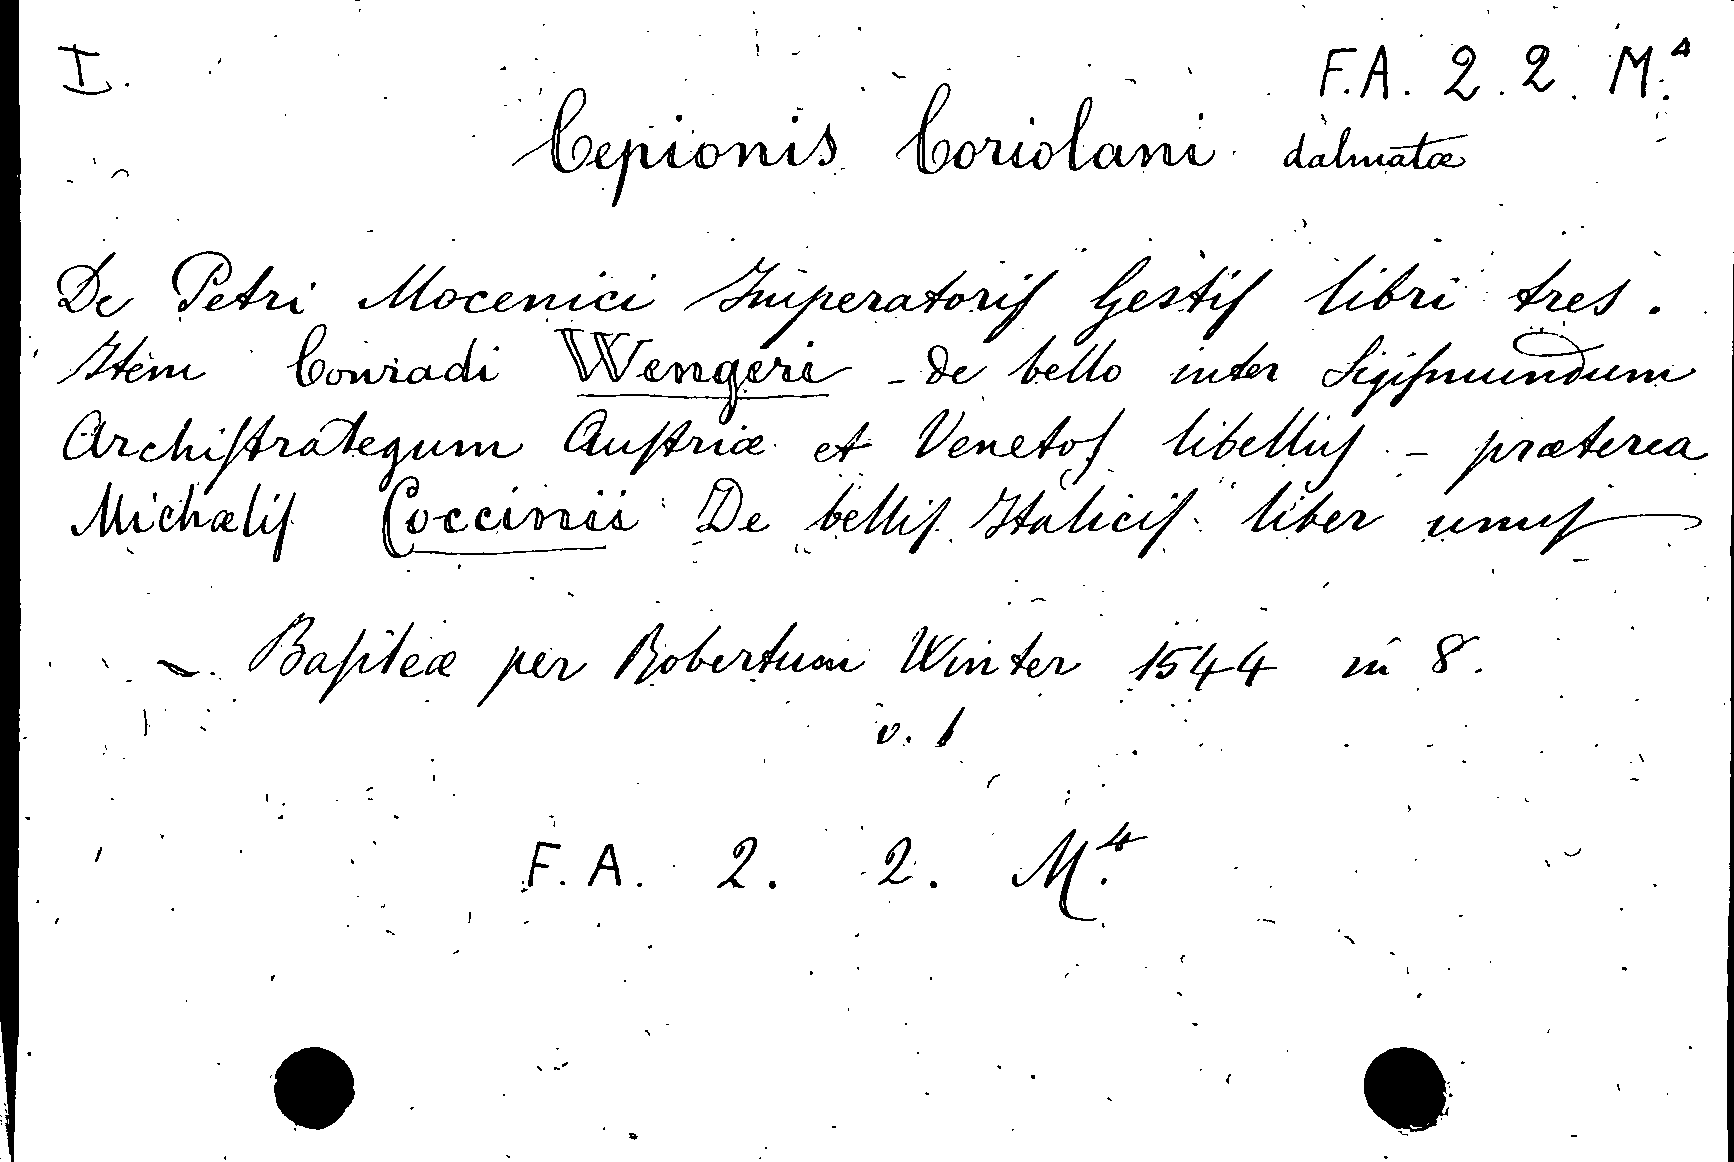 I. F.A. 2. 2. M.⁴
Cepionis Coriolani dalmatæ
De Petri Mocenici Imperatoriſ Gestiſ libri tres.
Item Conradi Wengeri - de bello inter Sigiſmundum
Archiſtrategum Auſtriæ et Venetoſ libelluſ - præterea
Michæliſ Coccinii De belliſ Italiciſ liber unuſ
- Baſileæ per Robertum Winter 1544 in 8.
v. 1
F. A. 2. 2. M.⁴